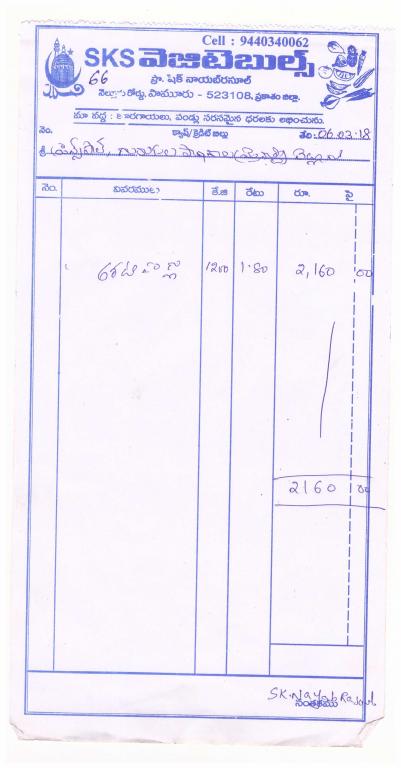 Cell : 9440340062
SKS వెజిటెబుల్స్
66
ప్రొ. షేక్ నాయబ్‌రసూల్
నెల్లూరు రోడ్డు, పామూరు - 523108, ప్రకాశం జిల్లా.
మా వద్ద : కూరగాయలు, పండ్లు సరసమైన ధరలకు లభించును.
నెం. క్యాష్/క్రెడిట్ బిల్లు తేది: 06.03.18
శ్రీ ప్రిన్సిపాల్, గురుకుల పాఠశాల
నెం. వివరములు కే.జి రేటు రూ. పై
1200 1.80 2,160 00
2160 00
SK. Nayab Rasool
సంతకము